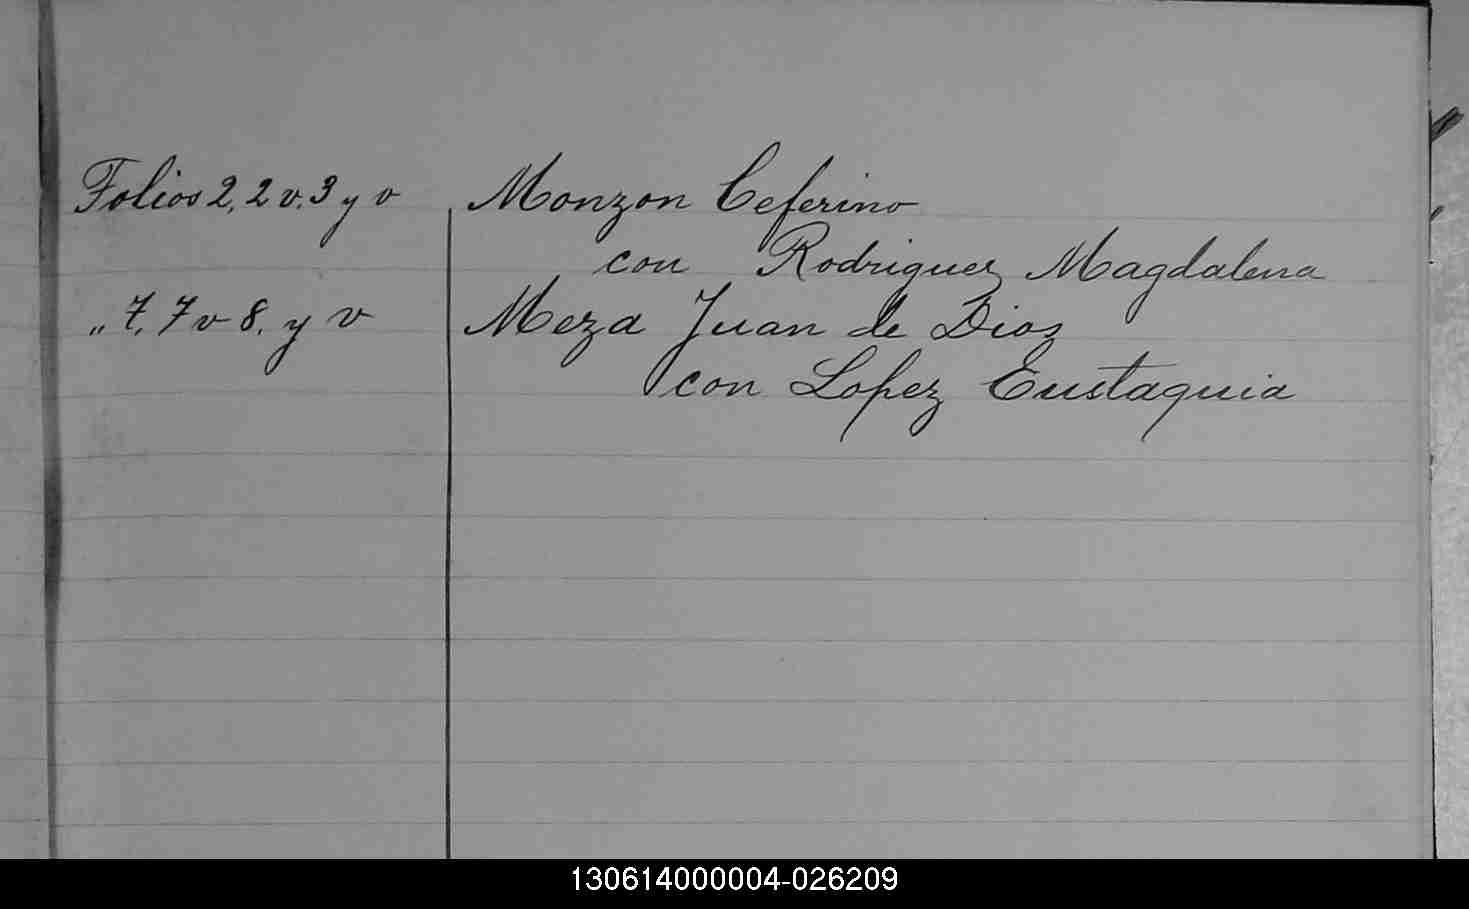 Folios 2, 2 v. 3 y v Monzon Ceferino
con Rodriguez Magdalena
" 7, 7 v 8. y v Meza Juan de Dios
con Lopez Eustaquia
130614000004-026209